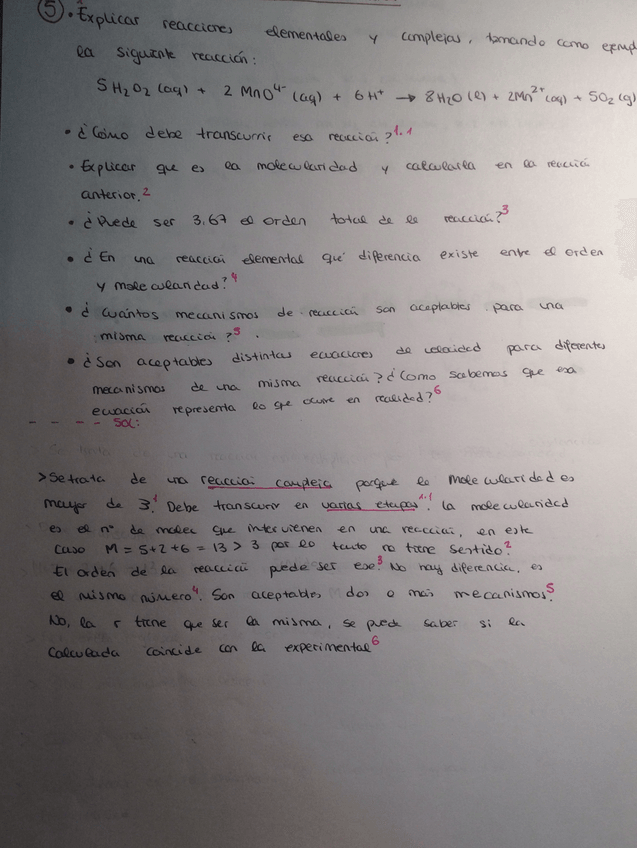 ⑤ • Explicar reacciones elementales y complejas, tomando como ejempl
la siguiente reacción:
5 H₂O₂ (aq) + 2 MnO⁴⁻ (aq) + 6 H⁺ → 8 H₂O (l) + 2Mn²⁺ (aq) + 5O₂ (g)
• ¿Cómo debe transcurrir esa reacción? 1.1
• Explicar que es la molecularidad y calcularla en la reacción
anterior. 2
• ¿Puede ser 3.67 el orden total de la reacción? 3
• ¿En una reacción elemental qué diferencia existe entre el orden
y molecularidad? 4
• ¿Cuántos mecanismos de reacción son aceptables para una
misma reacción? 5 .
• ¿Son aceptables distintas ecuaciones de velocidad para diferentes
mecanismos de una misma reacción? ¿Cómo sabemos que esa
ecuación representa lo que ocurre en realidad? 6
- - - - SOL:
> Se trata de una reacción compleja porque la molecularidad es
mayor de 3. 1 Debe transcurrir en varias etapas 1.1. La molecularidad
es el nº de molec que intervienen en una reacción, en este
caso M = 5+2+6 = 13 > 3 por lo tanto no tiene sentido. 2
El orden de la reacción puede ser ese. 3 No hay diferencia, es
el mismo número 4. Son aceptables dos o más mecanismos. 5
No, la r tiene que ser la misma, se puede saber si la
calculada coincide con la experimental 6